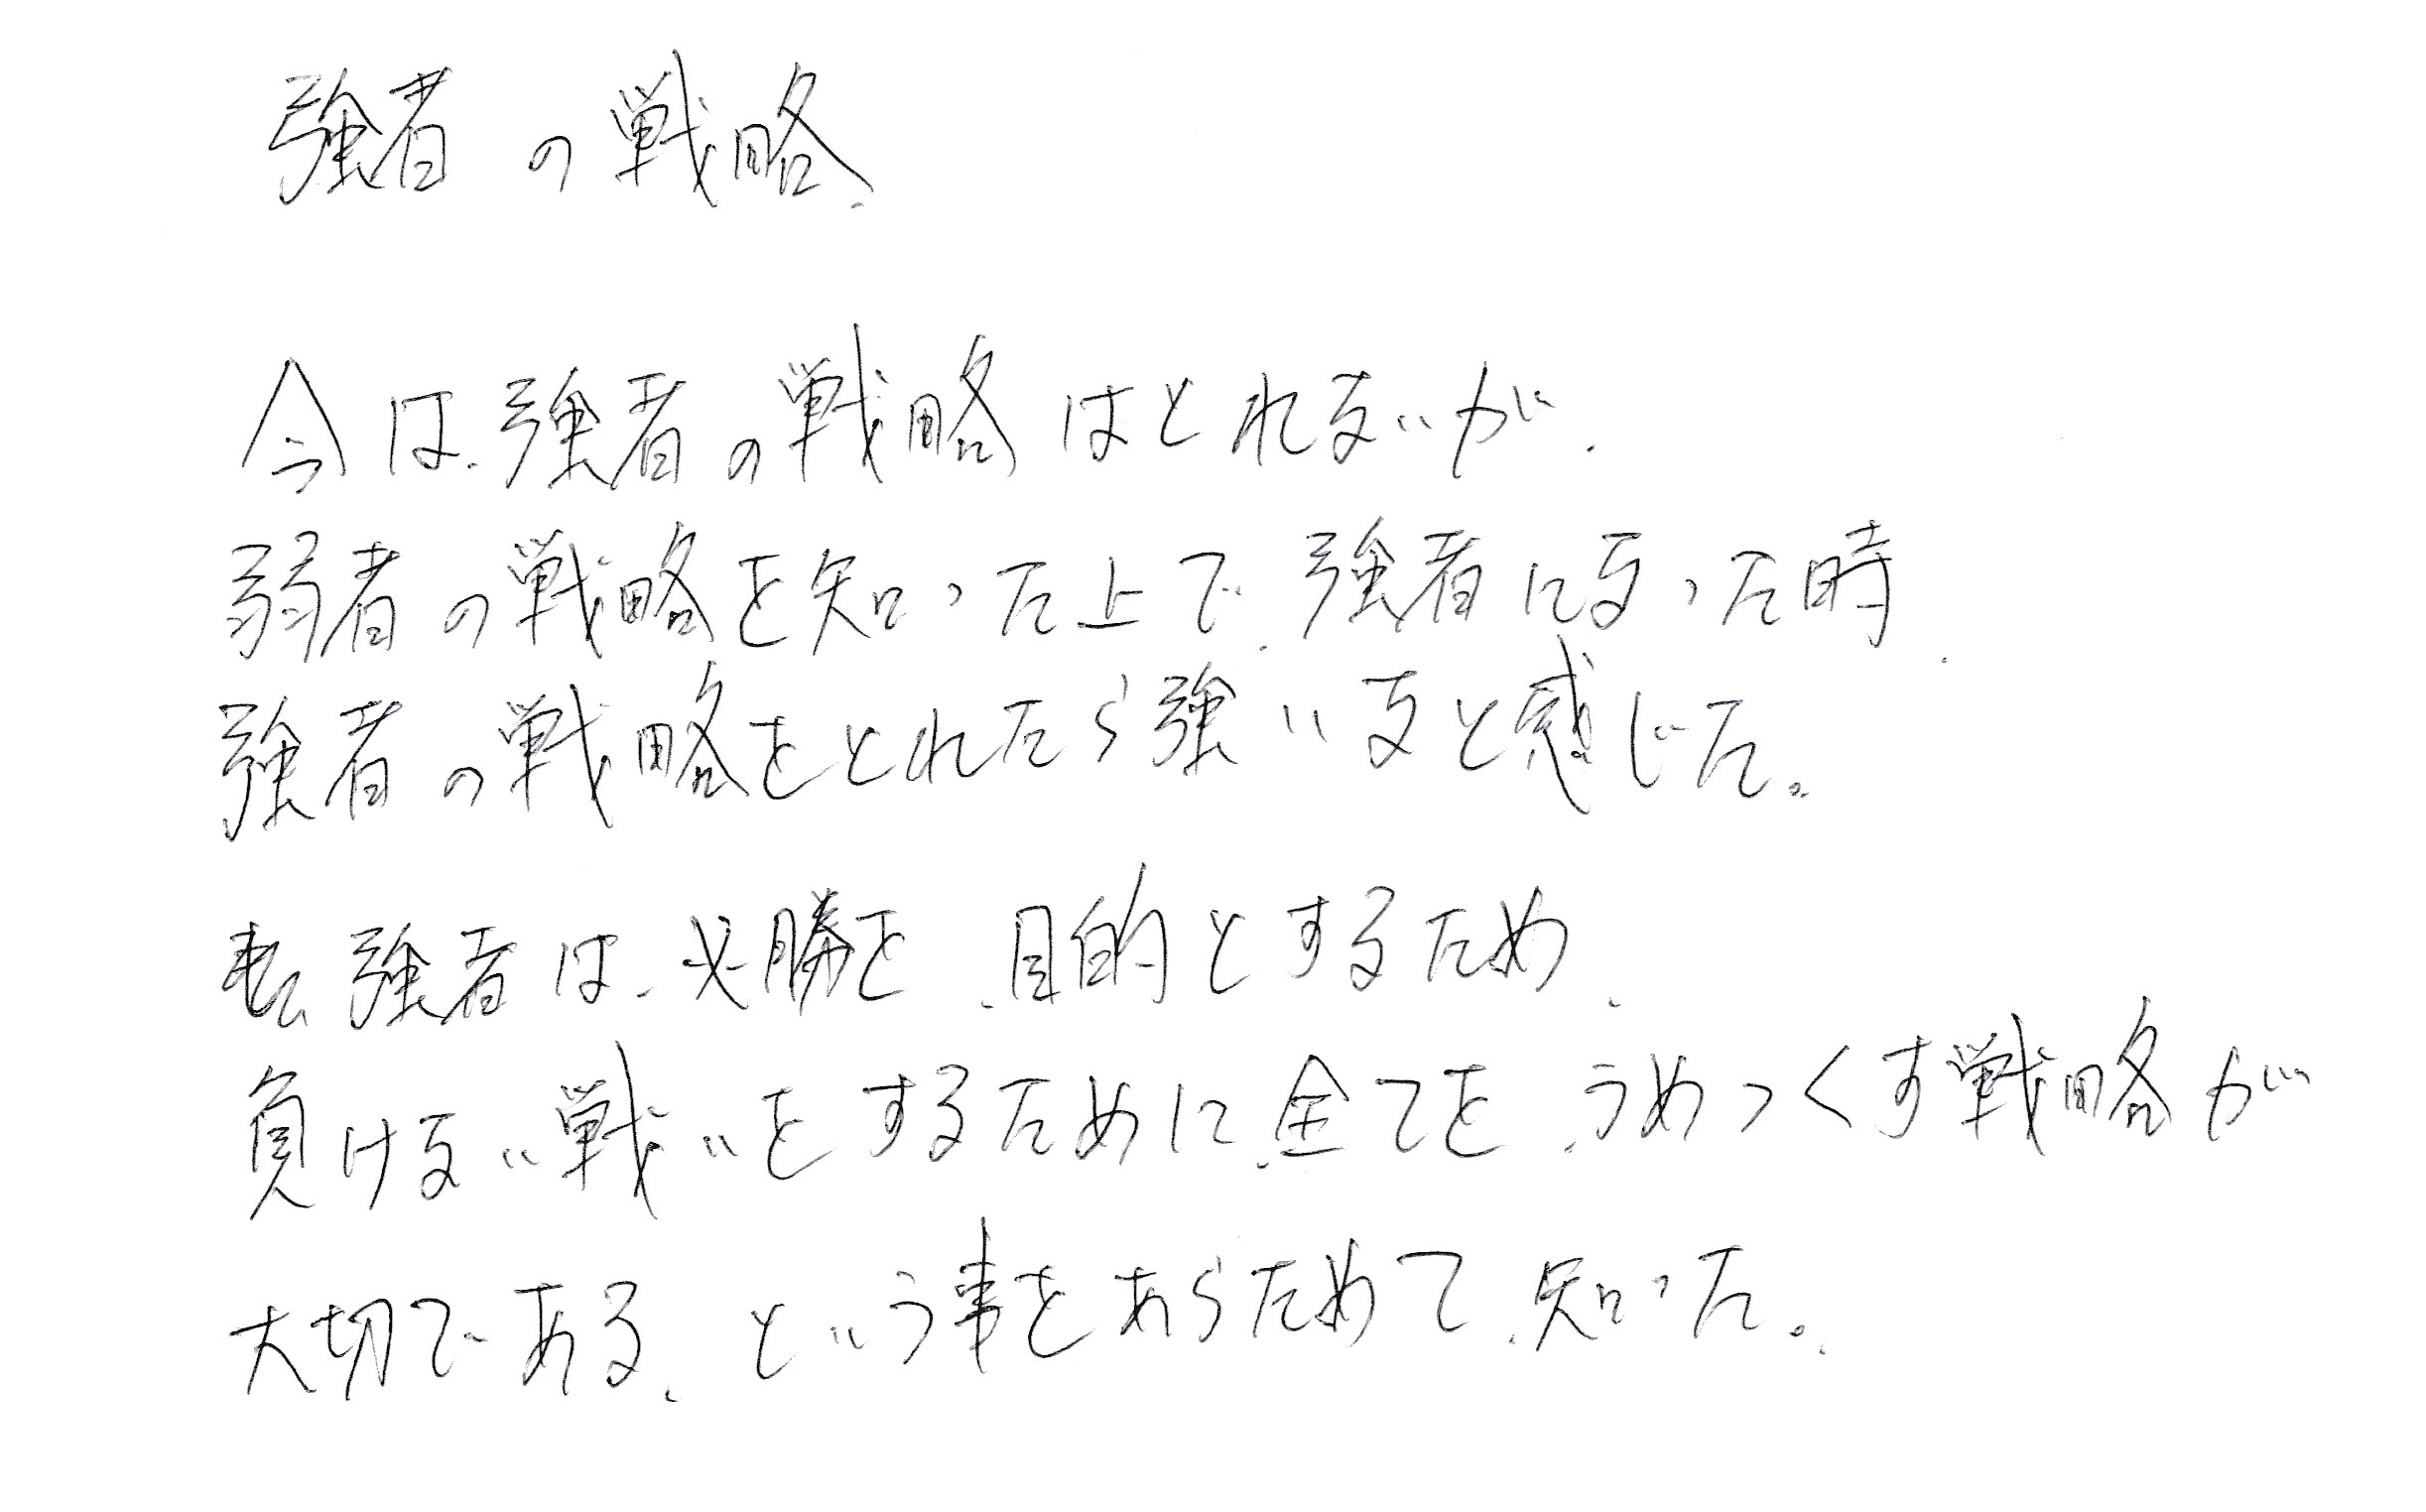 強者の戦略、
今は、強者の戦略はとれないが、
弱者の戦略を知った上で、強者になった時、
強者の戦略をとれたら強いなと感じた。
強者は、必勝を、目的とするため、
負けない戦いをするために、全てを、うめつくす戦略が
大切である、という事をあらためて、知った。